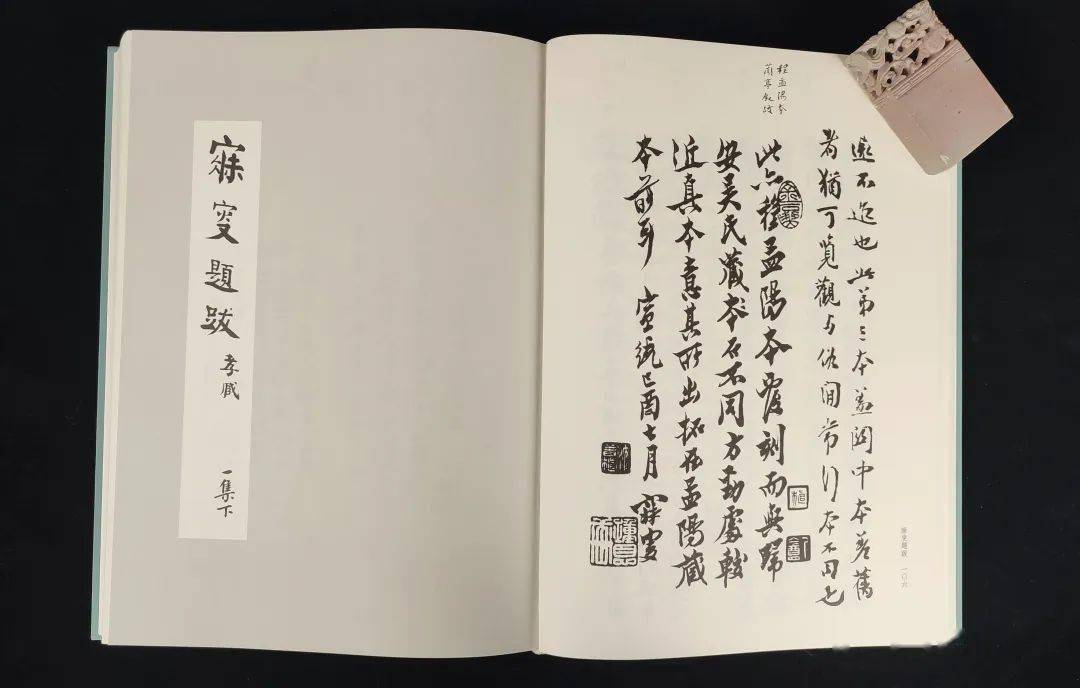 遠不逮也此第三本蓋關中本差舊
者猶可覽觀与俗間常行本不同也
此亦程孟陽本覆刻而與歸
安吳氏藏本石不同方勁處較
近真本意其所出拓在孟陽藏
本前耳 宣統己酉七月 寐叟
程孟陽本
蘭亭敘跋
植
寐叟題跋 一〇六
寐叟題跋
孝臧
一集下